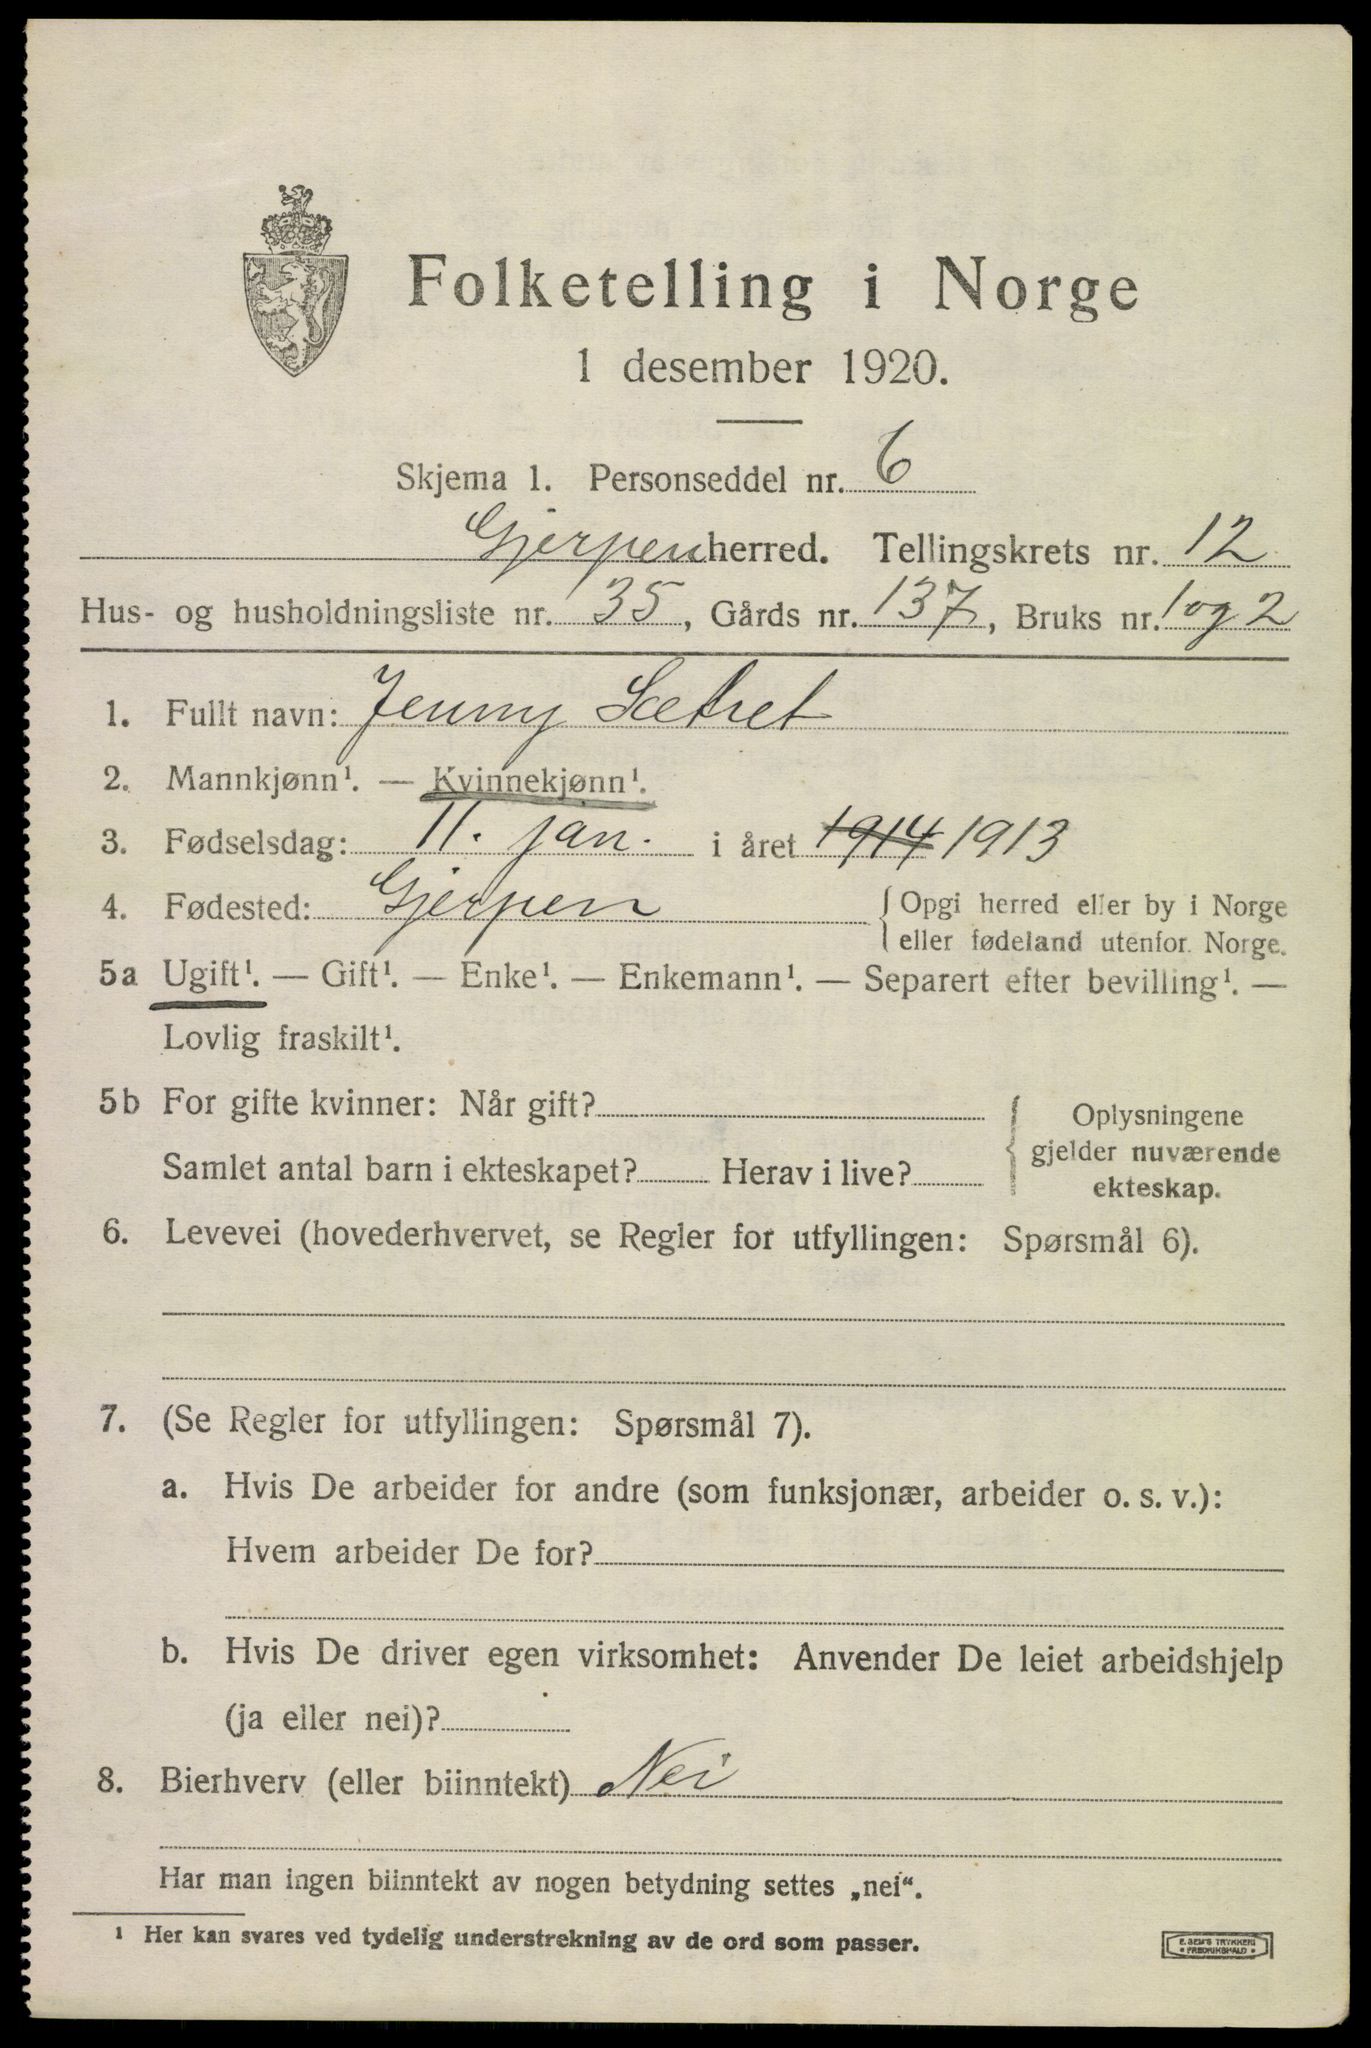 Folketelling i Norge
1 desember 1920.
Skjema 1. Personseddel nr. 6
Gjerpen herred. Tellingskrets nr. 12
Hus- og husholdningsliste nr. 35, Gårds nr. 137, Bruks nr. 1 og 2
1. Fullt navn: Jenny Sætret
2. Mannkjønn¹. — Kvinnekjønn¹.
3. Fødselsdag: 11. jan. i året 1914 1913
4. Fødested: Gjerpen { Opgi herred eller by i Norge
eller fødeland utenfor. Norge.
5a Ugift¹. — Gift¹. — Enke¹. — Enkemann¹. — Separert efter bevilling¹. —
Lovlig fraskilt¹.
5b For gifte kvinner: Når gift?
Samlet antal barn i ekteskapet? Herav i live?
{ Oplysningene
gjelder nuværende
ekteskap.
6. Levevei (hovederhvervet, se Regler for utfyllingen: Spørsmål 6).
7. (Se Regler for utfyllingen: Spørsmål 7).
a. Hvis De arbeider for andre (som funksjonær, arbeider o. s. v.):
Hvem arbeider De for?
b. Hvis De driver egen virksomhet: Anvender De leiet arbeidshjelp
(ja eller nei)?
8. Bierhverv (eller biinntekt) Nei
Har man ingen biinntekt av nogen betydning settes „nei“.
¹ Her kan svares ved tydelig understrekning av de ord som passer.
E. SEM'S TRYKKERI
• FREDRIKSHALD •